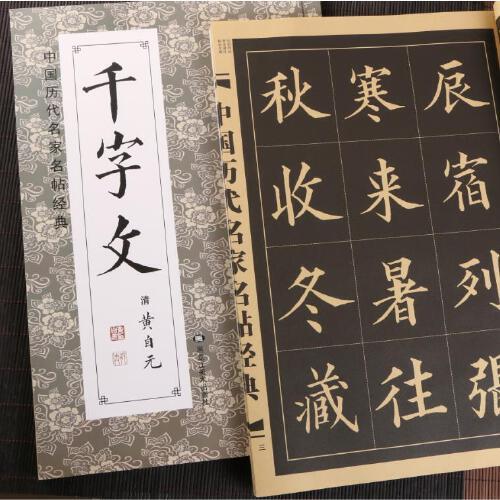 中国历代名家名帖经典
千字文
清 黄自元
中国历代名家名帖经典
三
辰宿列張
寒来暑往
秋收冬藏